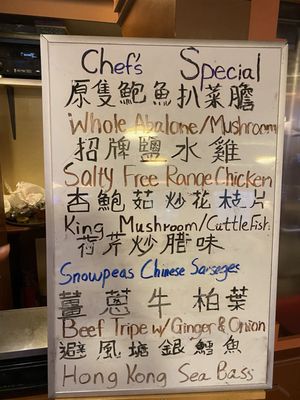 Chef's Special
原隻鮑魚扒菜膽
Whole Abalone/Mushroom
招牌鹽水雞
Salty Free Range Chicken
杏鮑茹炒花枝片
King Mushroom/Cuttle Fish
荷芹炒腊味
Snowpeas Chinese Sarseges
薑蔥牛柏葉
Beef Tripe w/Ginger & Onion
避風塘銀鱈魚
Hong Kong Sea Bass